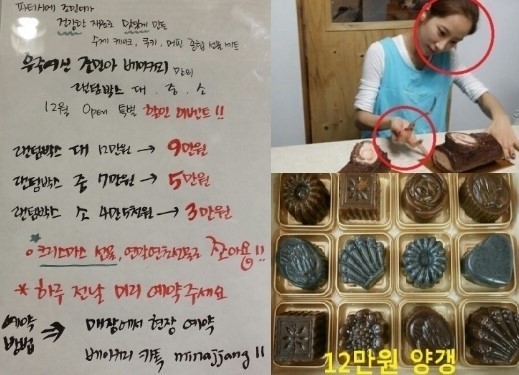 파티시에 조민아가
건강한 재료로 달달하게 만든
수제 케이크, 쿠키, 머핀, 종합 선물세트
우주여신 조민아 베이커리 만의
랜덤박스 대 . 중 . 소
12월 Open 특별 할인 이벤트!!
랜덤박스 대 12만원 → 9만원
랜덤박스 중 7만원 → 5만원
랜덤박스 소 4만5천원 → 3만원
크리스마스 선물, 연말연초선물로 좋아용!!
* 하루 전날 미리 예약주세요
예약방법 ⇒ 매장에서 현장 예약
베이커리 카톡 minajjang!!
12만원 양갱